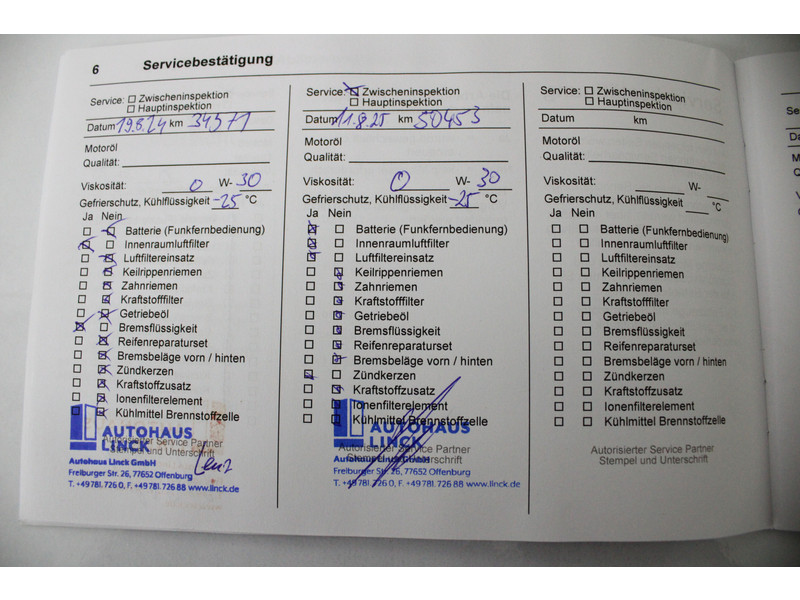 6 Servicebestätigung
Service: Zwischeninspektion
Hauptinspektion
Datum 19.8.24 km 34571
Motoröl
Qualität:
Viskosität: 0 W- 30
Gefrierschutz, Kühlflüssigkeit -25 °C
Ja Nein
Batterie (Funkfernbedienung)
Innenraumluftfilter
Luftfiltereinsatz
Keilrippenriemen
Zahnriemen
Kraftstofffilter
Getriebeöl
Bremsflüssigkeit
Reifenreparaturset
Bremsbeläge vorn / hinten
Zündkerzen
Kraftstoffzusatz
Ionenfilterelement
Kühlmittel Brennstoffzelle
AUTOHAUS
LINCK
Autorisierter Service Partner
Stempel und Unterschrift
Autohaus Linck GmbH
Freiburger Str. 26, 77652 Offenburg
T. +49 781. 726 0, F. +49 781. 726 88 www.linck.de
Service: Zwischeninspektion
Hauptinspektion
Datum 11.8.25 km 50453
Motoröl
Qualität:
Viskosität: 0 W- 30
Gefrierschutz, Kühlflüssigkeit -25 °C
Ja Nein
Batterie (Funkfernbedienung)
Innenraumluftfilter
Luftfiltereinsatz
Keilrippenriemen
Zahnriemen
Kraftstofffilter
Getriebeöl
Bremsflüssigkeit
Reifenreparaturset
Bremsbeläge vorn / hinten
Zündkerzen
Kraftstoffzusatz
Ionenfilterelement
Kühlmittel Brennstoffzelle
AUTOHAUS
LINCK
Autorisierter Service Partner
Stempel und Unterschrift
Autohaus Linck GmbH
Freiburger Str. 26, 77652 Offenburg
T. +49 781. 726 0, F. +49 781. 726 88 www.linck.de
Service: Zwischeninspektion
Hauptinspektion
Datum km
Motoröl
Qualität:
Viskosität: W-
Gefrierschutz, Kühlflüssigkeit °C
Ja Nein
Batterie (Funkfernbedienung)
Innenraumluftfilter
Luftfiltereinsatz
Keilrippenriemen
Zahnriemen
Kraftstofffilter
Getriebeöl
Bremsflüssigkeit
Reifenreparaturset
Bremsbeläge vorn / hinten
Zündkerzen
Kraftstoffzusatz
Ionenfilterelement
Kühlmittel Brennstoffzelle
Autorisierter Service Partner
Stempel und Unterschrift